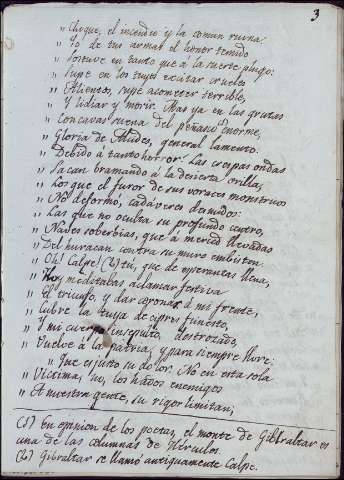 3
„ Choque, el incendio y la comun ruina.
„ Yo de tus armas el honor temido
„ Sostuve en tanto que à la suerte plugo:
„ Supe en los tuyos excitar crueles
„ Alientos, supe acometer terrible,
„ Y lidiar y morir. Mas ya en las grutas
„ Concavas suena del peñasco enorme,
„ Gloria de Alcides, general lamento.
„ Debido à tanto horror. Las crespas ondas
„ Sacan bramando à la desierta orilla,
„ Los que el furor de sus voraces monstruos
„ No deformò, cadáveres desnudos:
„ Las que no oculta su profundo centro,
„ Naves soberbias, que à merced llevadas
„ Del huracan contra su muro embisten.
„ Oh! Calpe! (2) tú, que de opulenta llena,
„ Hoy meditabas aclamar festiva
„ El triunfo, y dar coronas à mi frente,
„ Cubre la tuya de cipres funesto,
„ Y mi cuerpo insepulto, destrozado,
„ Vuelve à la pátria, y para siempre llore:
„ Que es justo su dolor. No en esta sola
„ Victima, no, los hados enemigos
„ A nuestra gente, su rigor limitan,
(1) En opinion de los poetas, el monte de Gibraltar es
una de las columnas de Hércules.
(2) Gibraltar se llamó antiguamente Calpe.